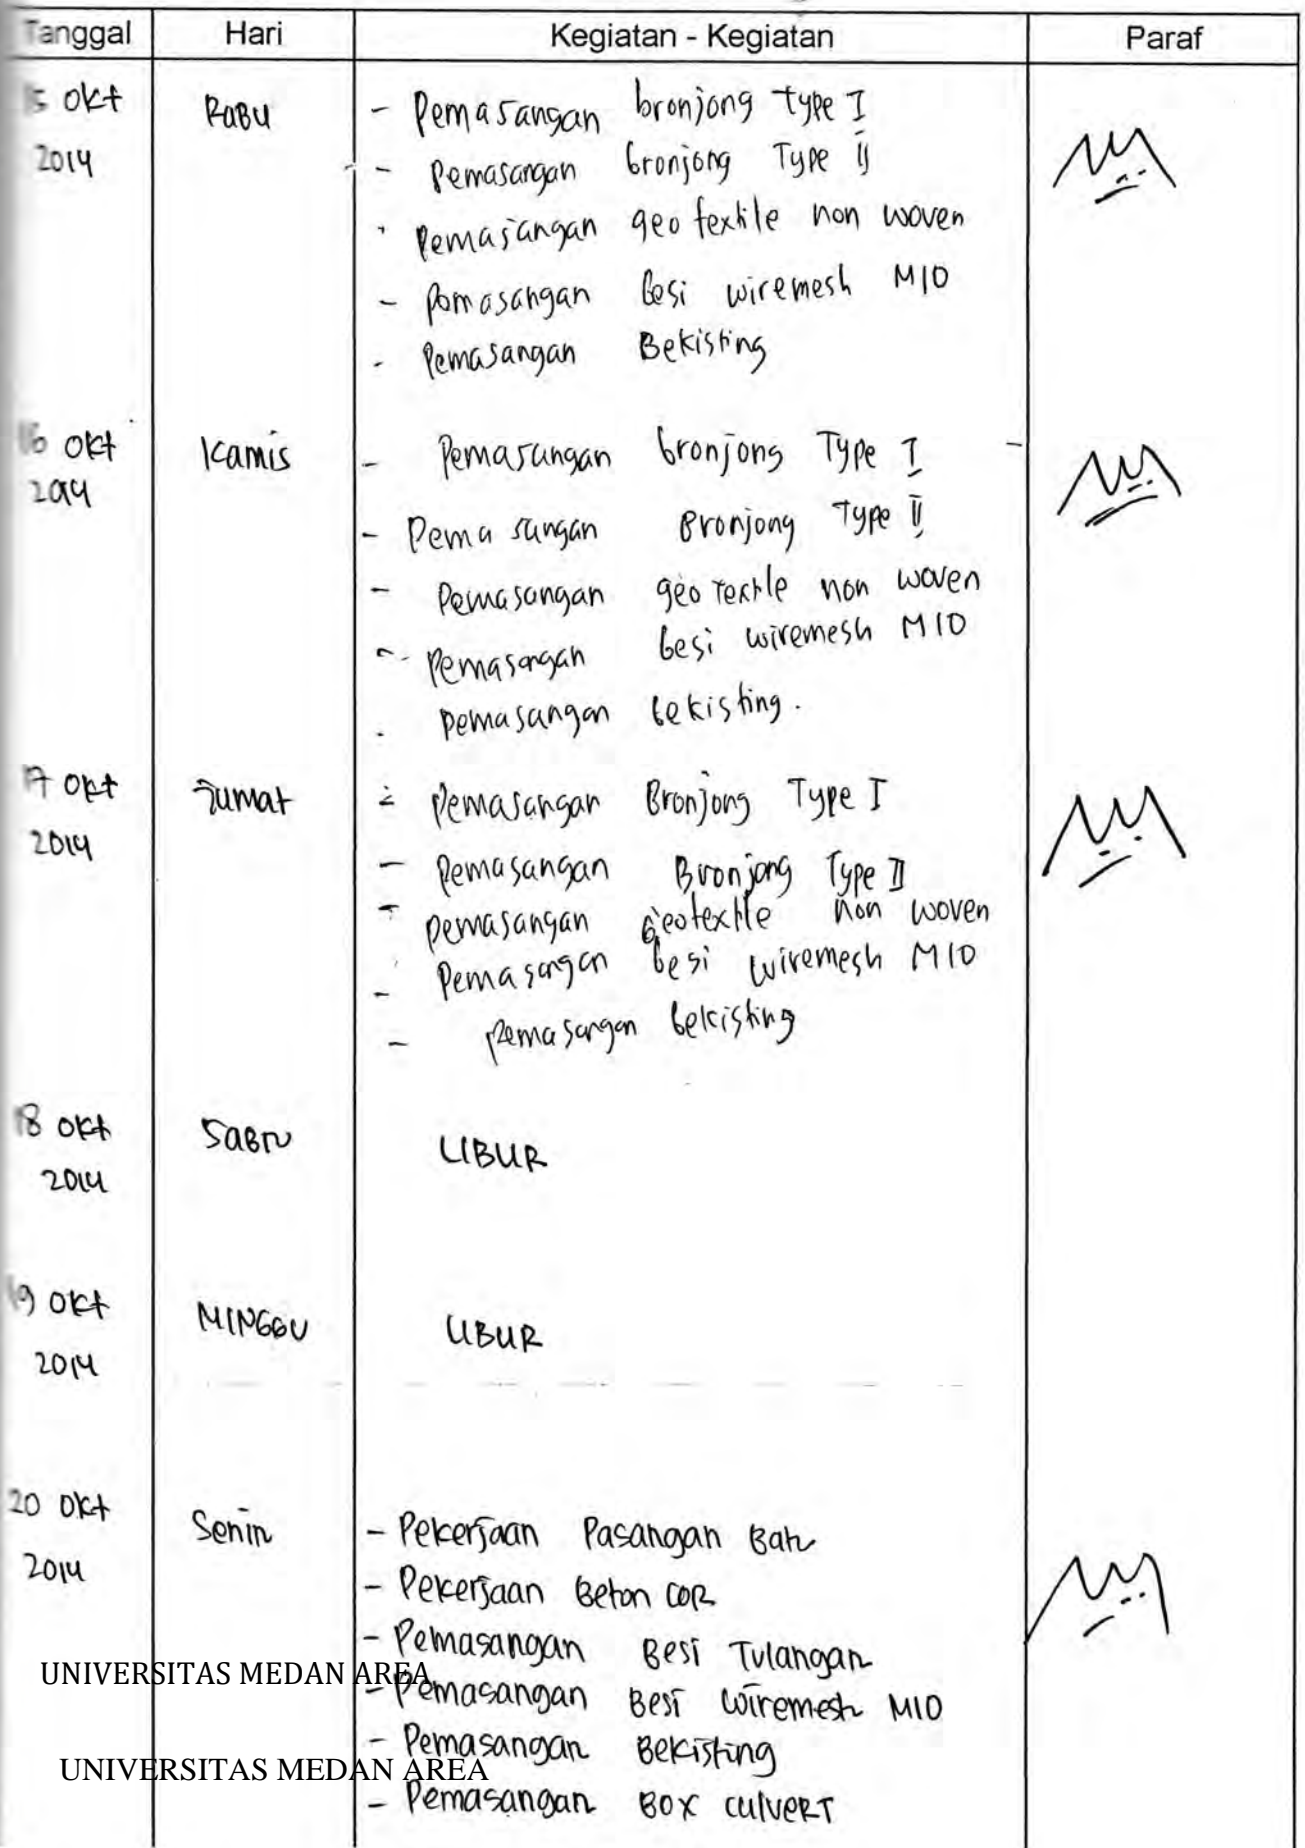 Tanggal Hari Kegiatan - Kegiatan Paraf
15 Okt Rabu - Pemasangan bronjong type I
2014 - Pemasangan bronjong Type II
- Pemasangan geo textile non woven
- Pemasangan besi wiremesh M10
- Pemasangan Bekisting
16 Okt Kamis - Pemasangan bronjong Type I
2014 - Pemasangan Bronjong Type II
- Pemasangan geo textile non woven
- Pemasangan besi wiremesh M10
- Pemasangan bekisting.
17 Okt Jumat - Pemasangan Bronjong Type I
2014 - Pemasangan Bronjong Type II
- Pemasangan Geotextile non woven
- Pemasangan besi wiremesh M10
- Pemasangan bekisting
18 Okt Sabtu LIBUR
2014
19 Okt MINGGU LIBUR
2014
20 Okt Senin - Pekerjaan Pasangan Batu
2014 - Pekerjaan Beton COR
- Pemasangan Besi Tulangan
UNIVERSITAS MEDAN AREA
- Pemasangan Besi wiremesh M10
- Pemasangan Bekisting
UNIVERSITAS MEDAN AREA
- Pemasangan BOX CULVERT